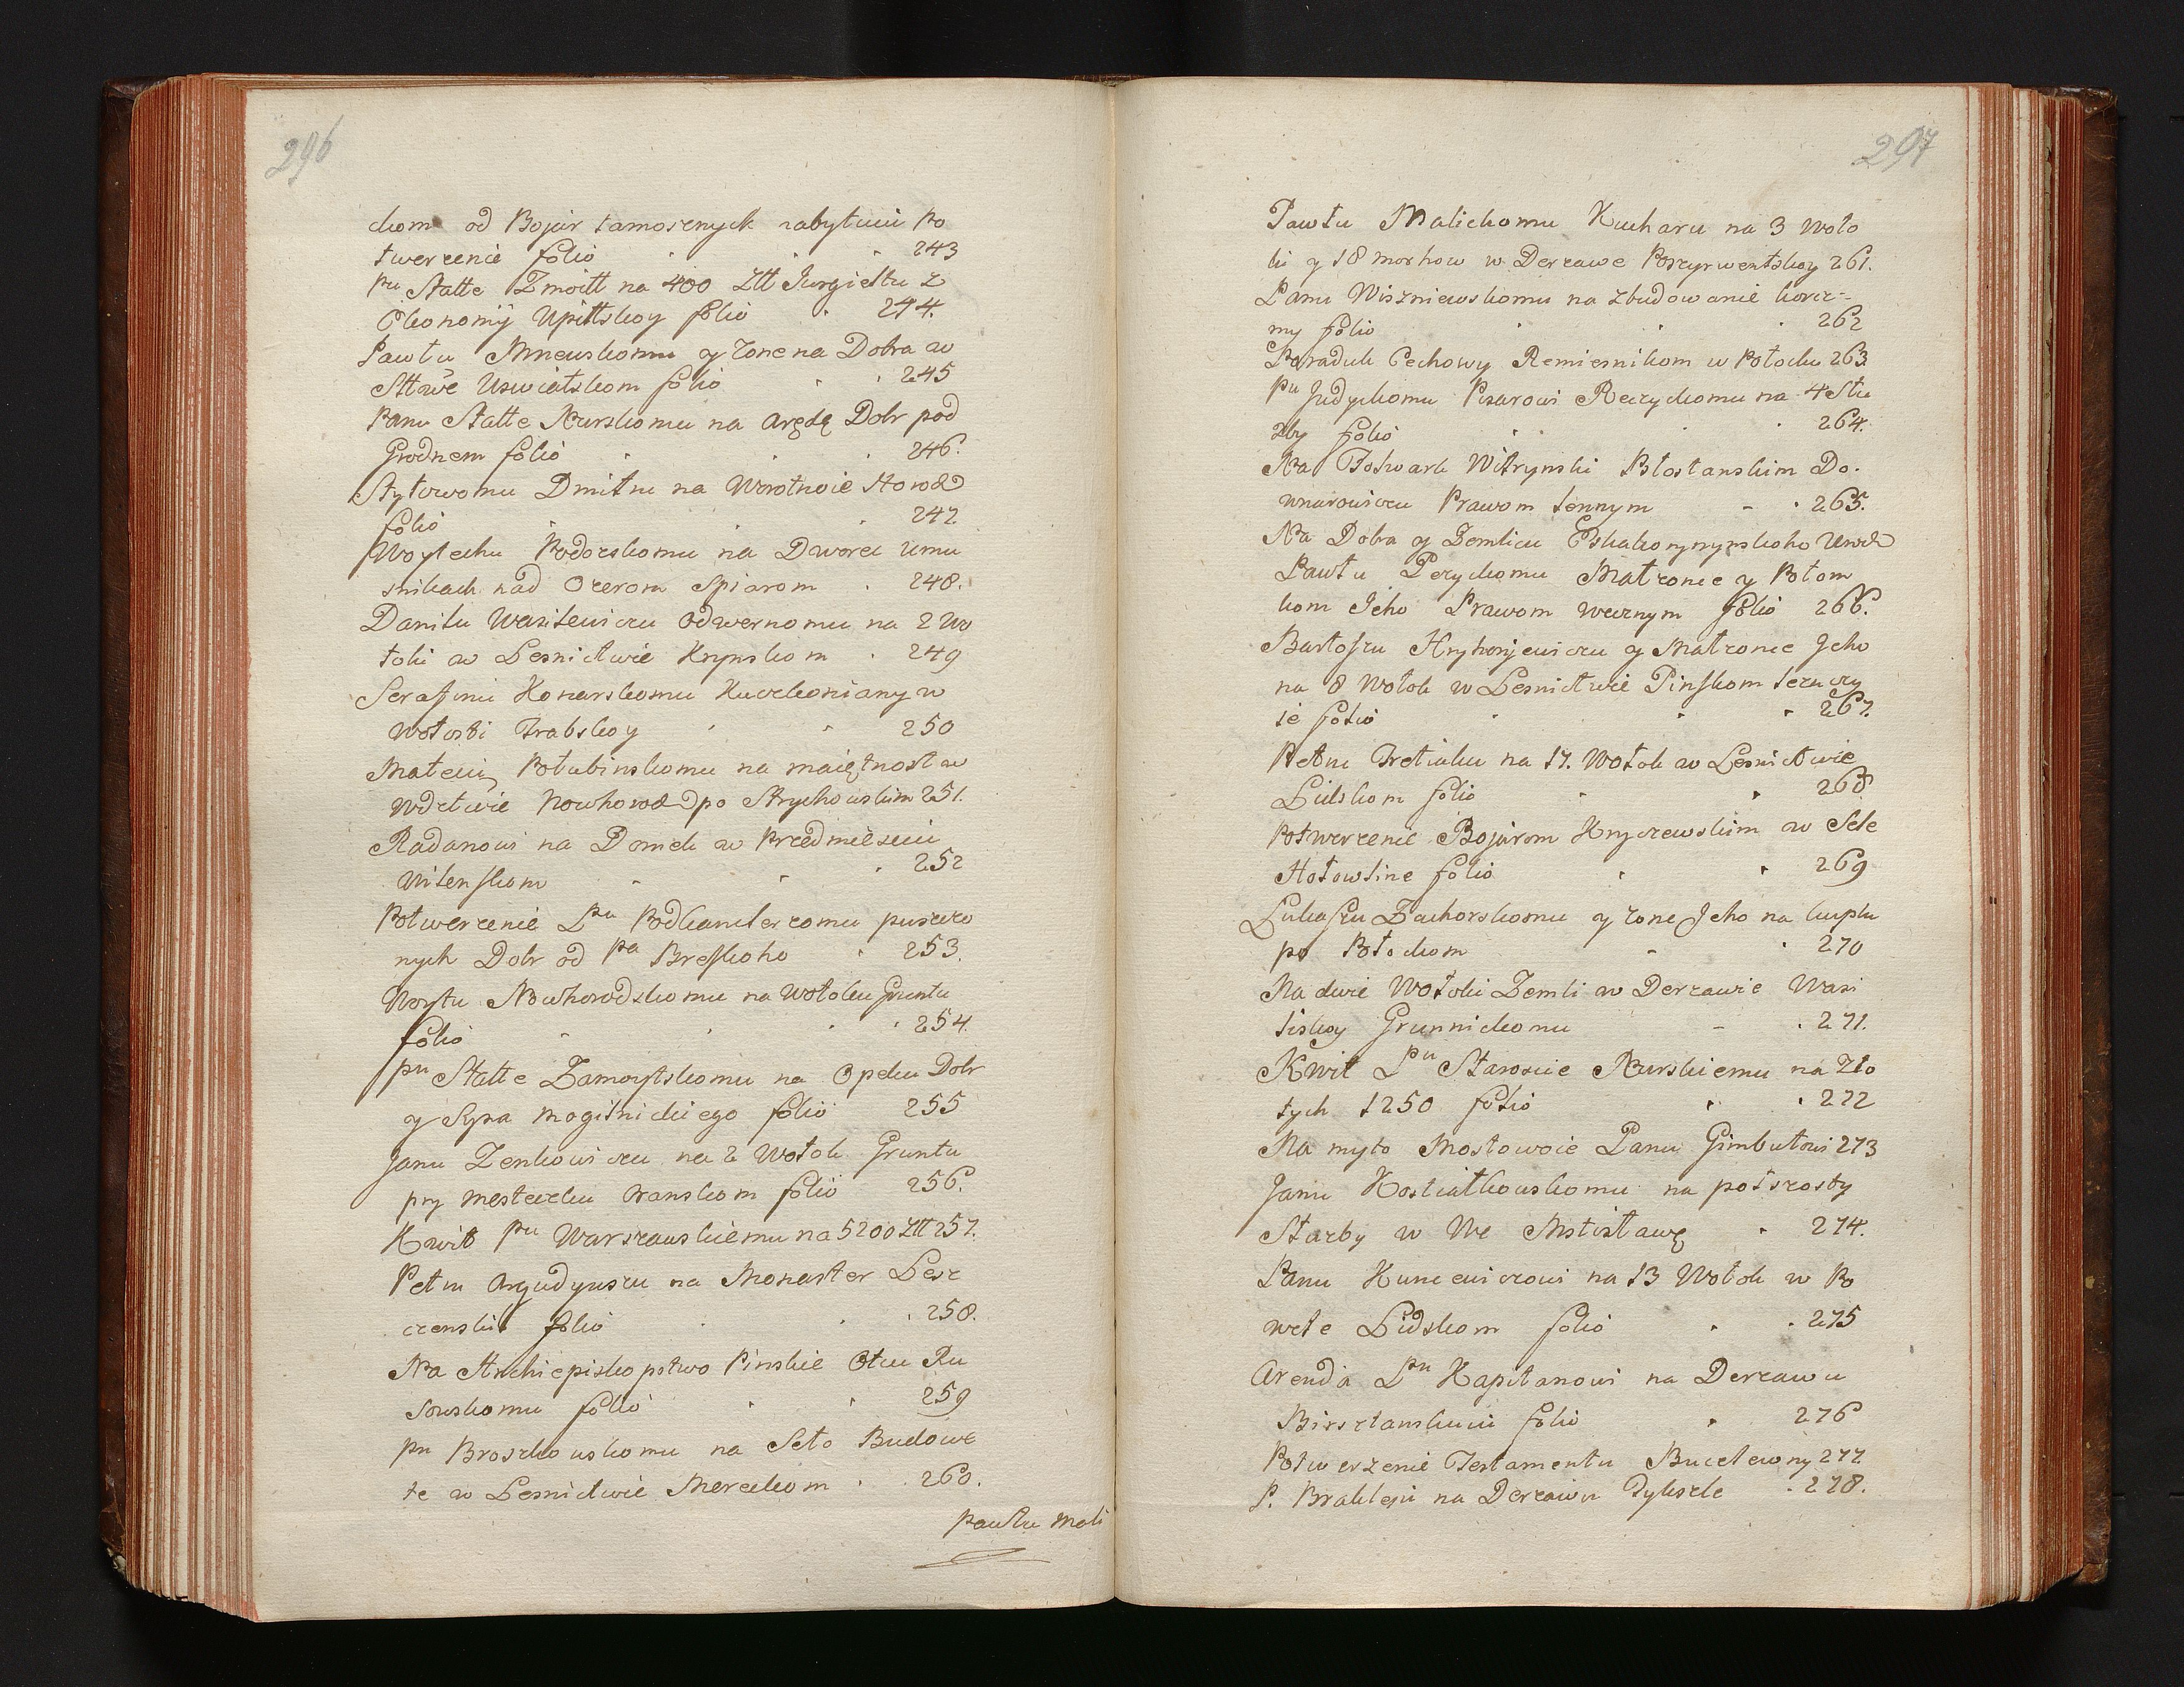 296
ckom od Bojar tamosznych nabytuiu Po
twerżenie folio 243
pu Statte Zmoitt na 400 Ztt Jurgieltu z
Ekonomij Upittskoy folio 244.
Pawłu Mniewskomu y żone na Dobra w
Sttwe Uswiatskom folio 245
Panu Statte Kurskomu na Aręndę Dobr pod
Grodnem folio 246.
Stytowomu Dmitru na Worotnoie Horod
folio 247
Woytechu Podorskomu na Dworec Umu
snikach nad Ozerom Spiarom 248.
Daniłu Wasilewiczu Odwernomu na 2 Wo
łoki w Lesnictwie Krynskom 249
Serafinu Konarskomu Kuchoniany w
Wołosti Trabskoy 250
Mateiu Połubinskomu na maiętnost w
Wdztwie Nowhorod po Strychowskim 251.
Radanowi na Domek w Przedmiesciu
Wilenskom 252
Potwerżenie Pu Podkanclerzomu puszczo
nych Dobr od Pa Breskoho 253.
Woytu Nowhorodskomu na Wołoku Gruntu
folio 254.
pu Statte Zamoytskomu na Opeku Dobr
y Syna Mogilnickiego folio 255
Janu Zenkowiczu na 2 Wołok Gruntu
pry Mesteczku Oranskom folio 256.
Kwit pu Warszawskiemu na 5200 Ztt 257.
Petru Argudyuszu na Monaster Lesz
czenskij folio 258.
Na Archiepiskopstwo Pinskie Otcu Ru
sowskomu folio 259
pu Broszkowskomu na Seło Budowe
te w Lesnictwie Mereckom 260.
Pawłu Mali
297
Pawłu Malickomu Kucharu na 3 Woło
ki y 18 morhow w Derżawe Poszyrwentskoy 261.
Panu Wiszniewskomu na zbudowanie korcz=
my folio 262
Poraduk Cechowy Remiesnikom w Połocku 263
Pu Judyckomu Pisarowi Reczyckomu na 4 Stu
zby folio 264.
Na Folwark Witrynski Płostanskim Do.
wnarowiczu Prawom lennym 265.
Na Dobra y Zemlicu Ekaterynynskoho Uwod
Pawłu Peryckomu Małżonce y Potom
kom Jeho Prawom wecznym folio 266.
Bartoszu Hryhorjewiczu y Małżonce Jeho
na 8 Wołok w Lesnictwie Pinskom leżuczy
ie folio 267.
Petru Tretiaku na 17. Wołok w Lesnictwie
Lidskom folio 268
Potwerżenie Bojarom Kryczewskim w Sele
Hołowline folio 269
Łukaszu Zachorskomu y żone Jeho na kuplu
po Potockom 270
Na dwie Wołoki Zemli w Derżawie Wasi
liskoy Grunnickomu 271.
Kwit Pu Staroscie Kurskiemu na Zło
tych 1250 folio 272
Na myto Mostowoie Panu Gimbutowi 273
Janu Kostiałkowskomu na połszosty
Starby w We Mstisławę 274.
Panu Kuncewiczowi na 13 Wołok w Po
wete Lidskom folio 275
Arenda Pu Kapitanowi na Derżawu
Birsztanskuiu folio 276
Potwerżenie Testamentu Bucelewny 277
P. Brahleju na Derżawu Tyksżle 278.